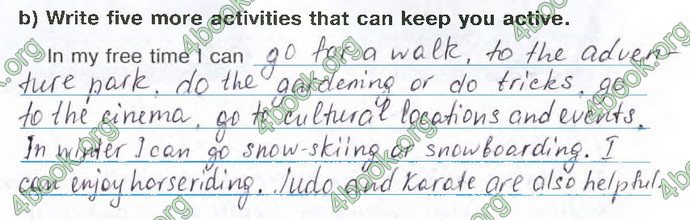 b) Write five more activities that can keep you active.
In my free time I can go for a walk, to the adven-
ture park, do the gardening or do tricks, go
to the cinema, go to cultural locations and events.
In winter I can go snow-skiing or snowboarding. I
can enjoy horseriding. Judo and Karate are also helpful.
4book.org